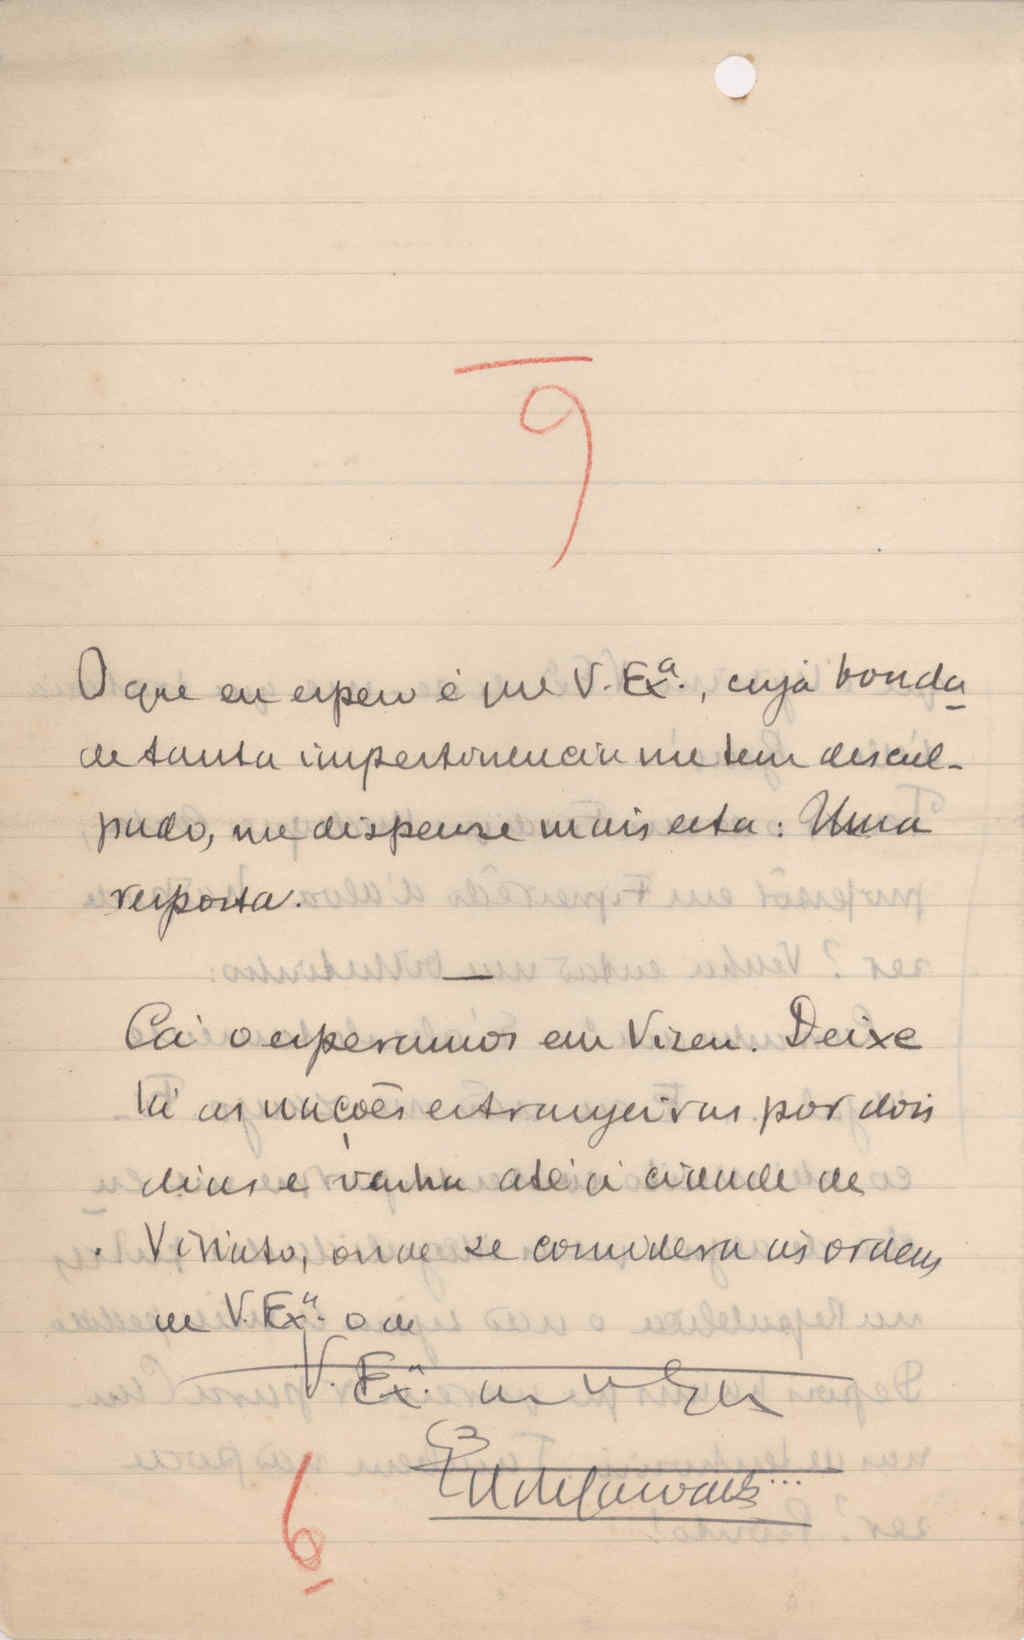 9
O que eu espero é que V. Exª., cuja bonda
de tanta impertinencia me tem descul-
pado, me dispense mais esta: Uma
resposta.
Cá o esperamos em Vizeu. Deixe
lá as nações estrangeiras por dois
dias e venha até á cidade de
Viriato, onde se considera ás ordens
de V. Exª. o de
V. Exª.
6